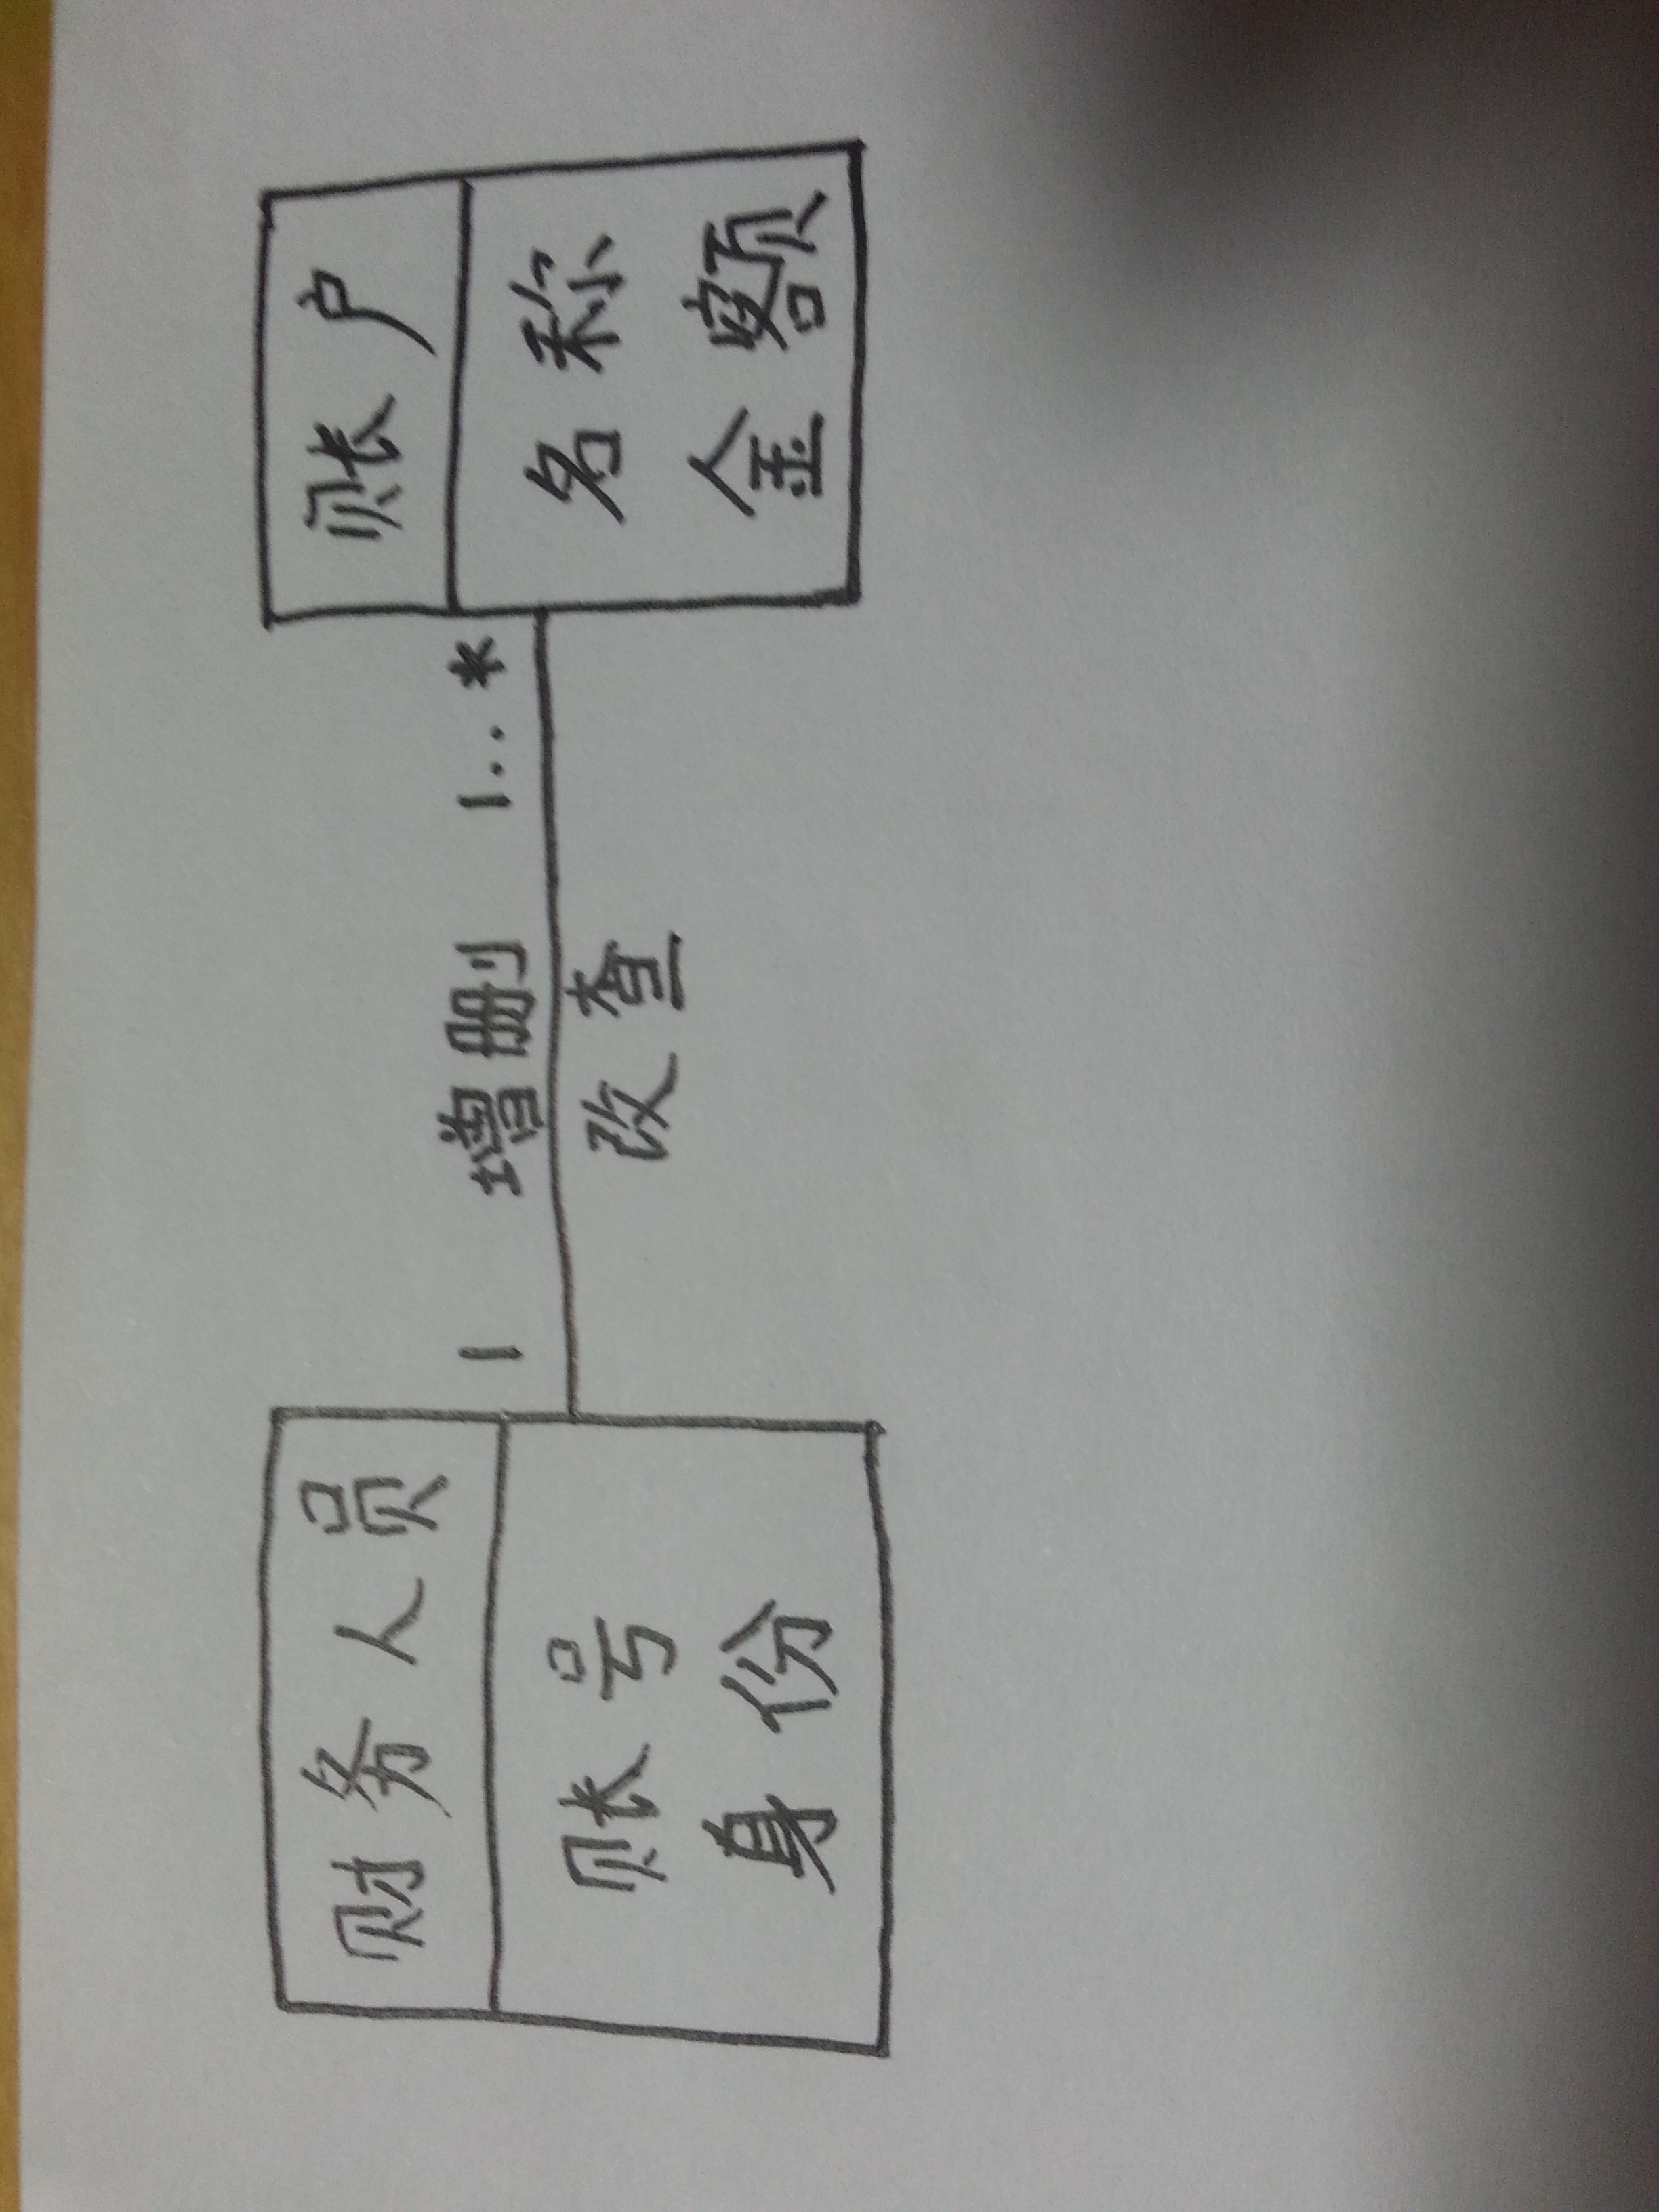 财务人员
账号
身份
1
增删
改查
1..*
账户
名称
金额